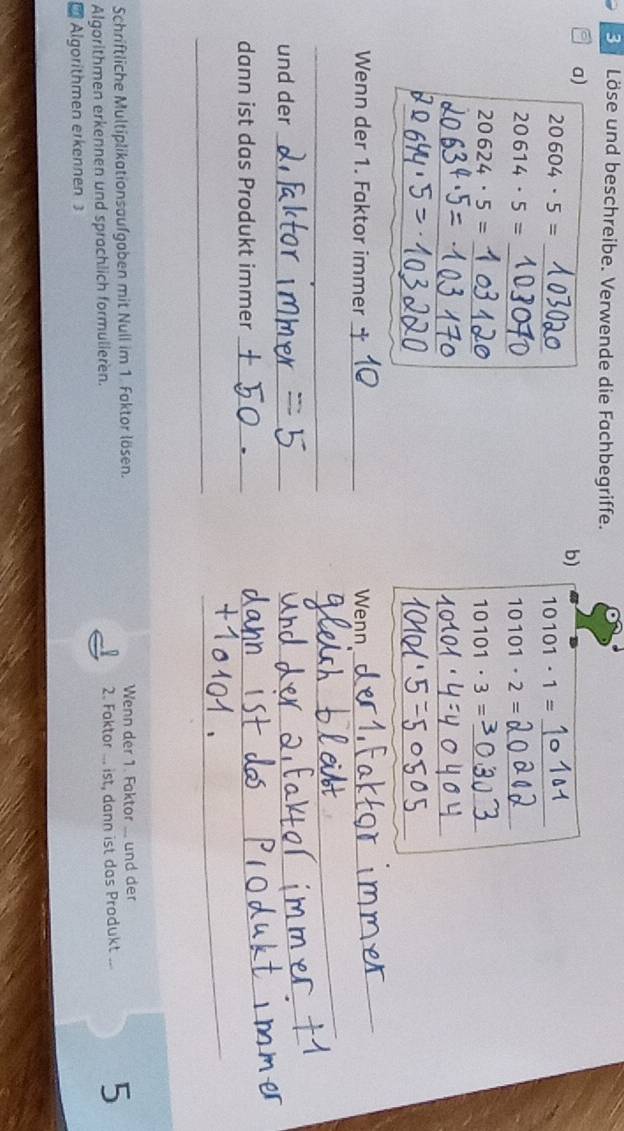 3 Löse und beschreibe. Verwende die Fachbegriffe.
a)
20 604 · 5 = 103020
20 614 · 5 = 103070
20 624 · 5 = 103120
20 634 · 5 = 103170
20 644 · 5 = 103220
Wenn der 1. Faktor immer + 10
und der 2. Faktor immer = 5
dann ist das Produkt immer + 50.
b)
10 101 · 1 = 10101
10 101 · 2 = 20202
10 101 · 3 = 30303
10101 · 4 = 40404
10101 · 5 = 50505
Wenn der 1. Faktor immer
gleich bleibt
und der 2. Faktor immer +1
dann ist das Produkt immer
+10101.
Schriftliche Multiplikationsaufgaben mit Null im 1. Faktor lösen.
Algorithmen erkennen und sprachlich formulieren.
Algorithmen erkennen 3
Wenn der 1. Faktor ... und der
2. Faktor ... ist, dann ist das Produkt ...
5